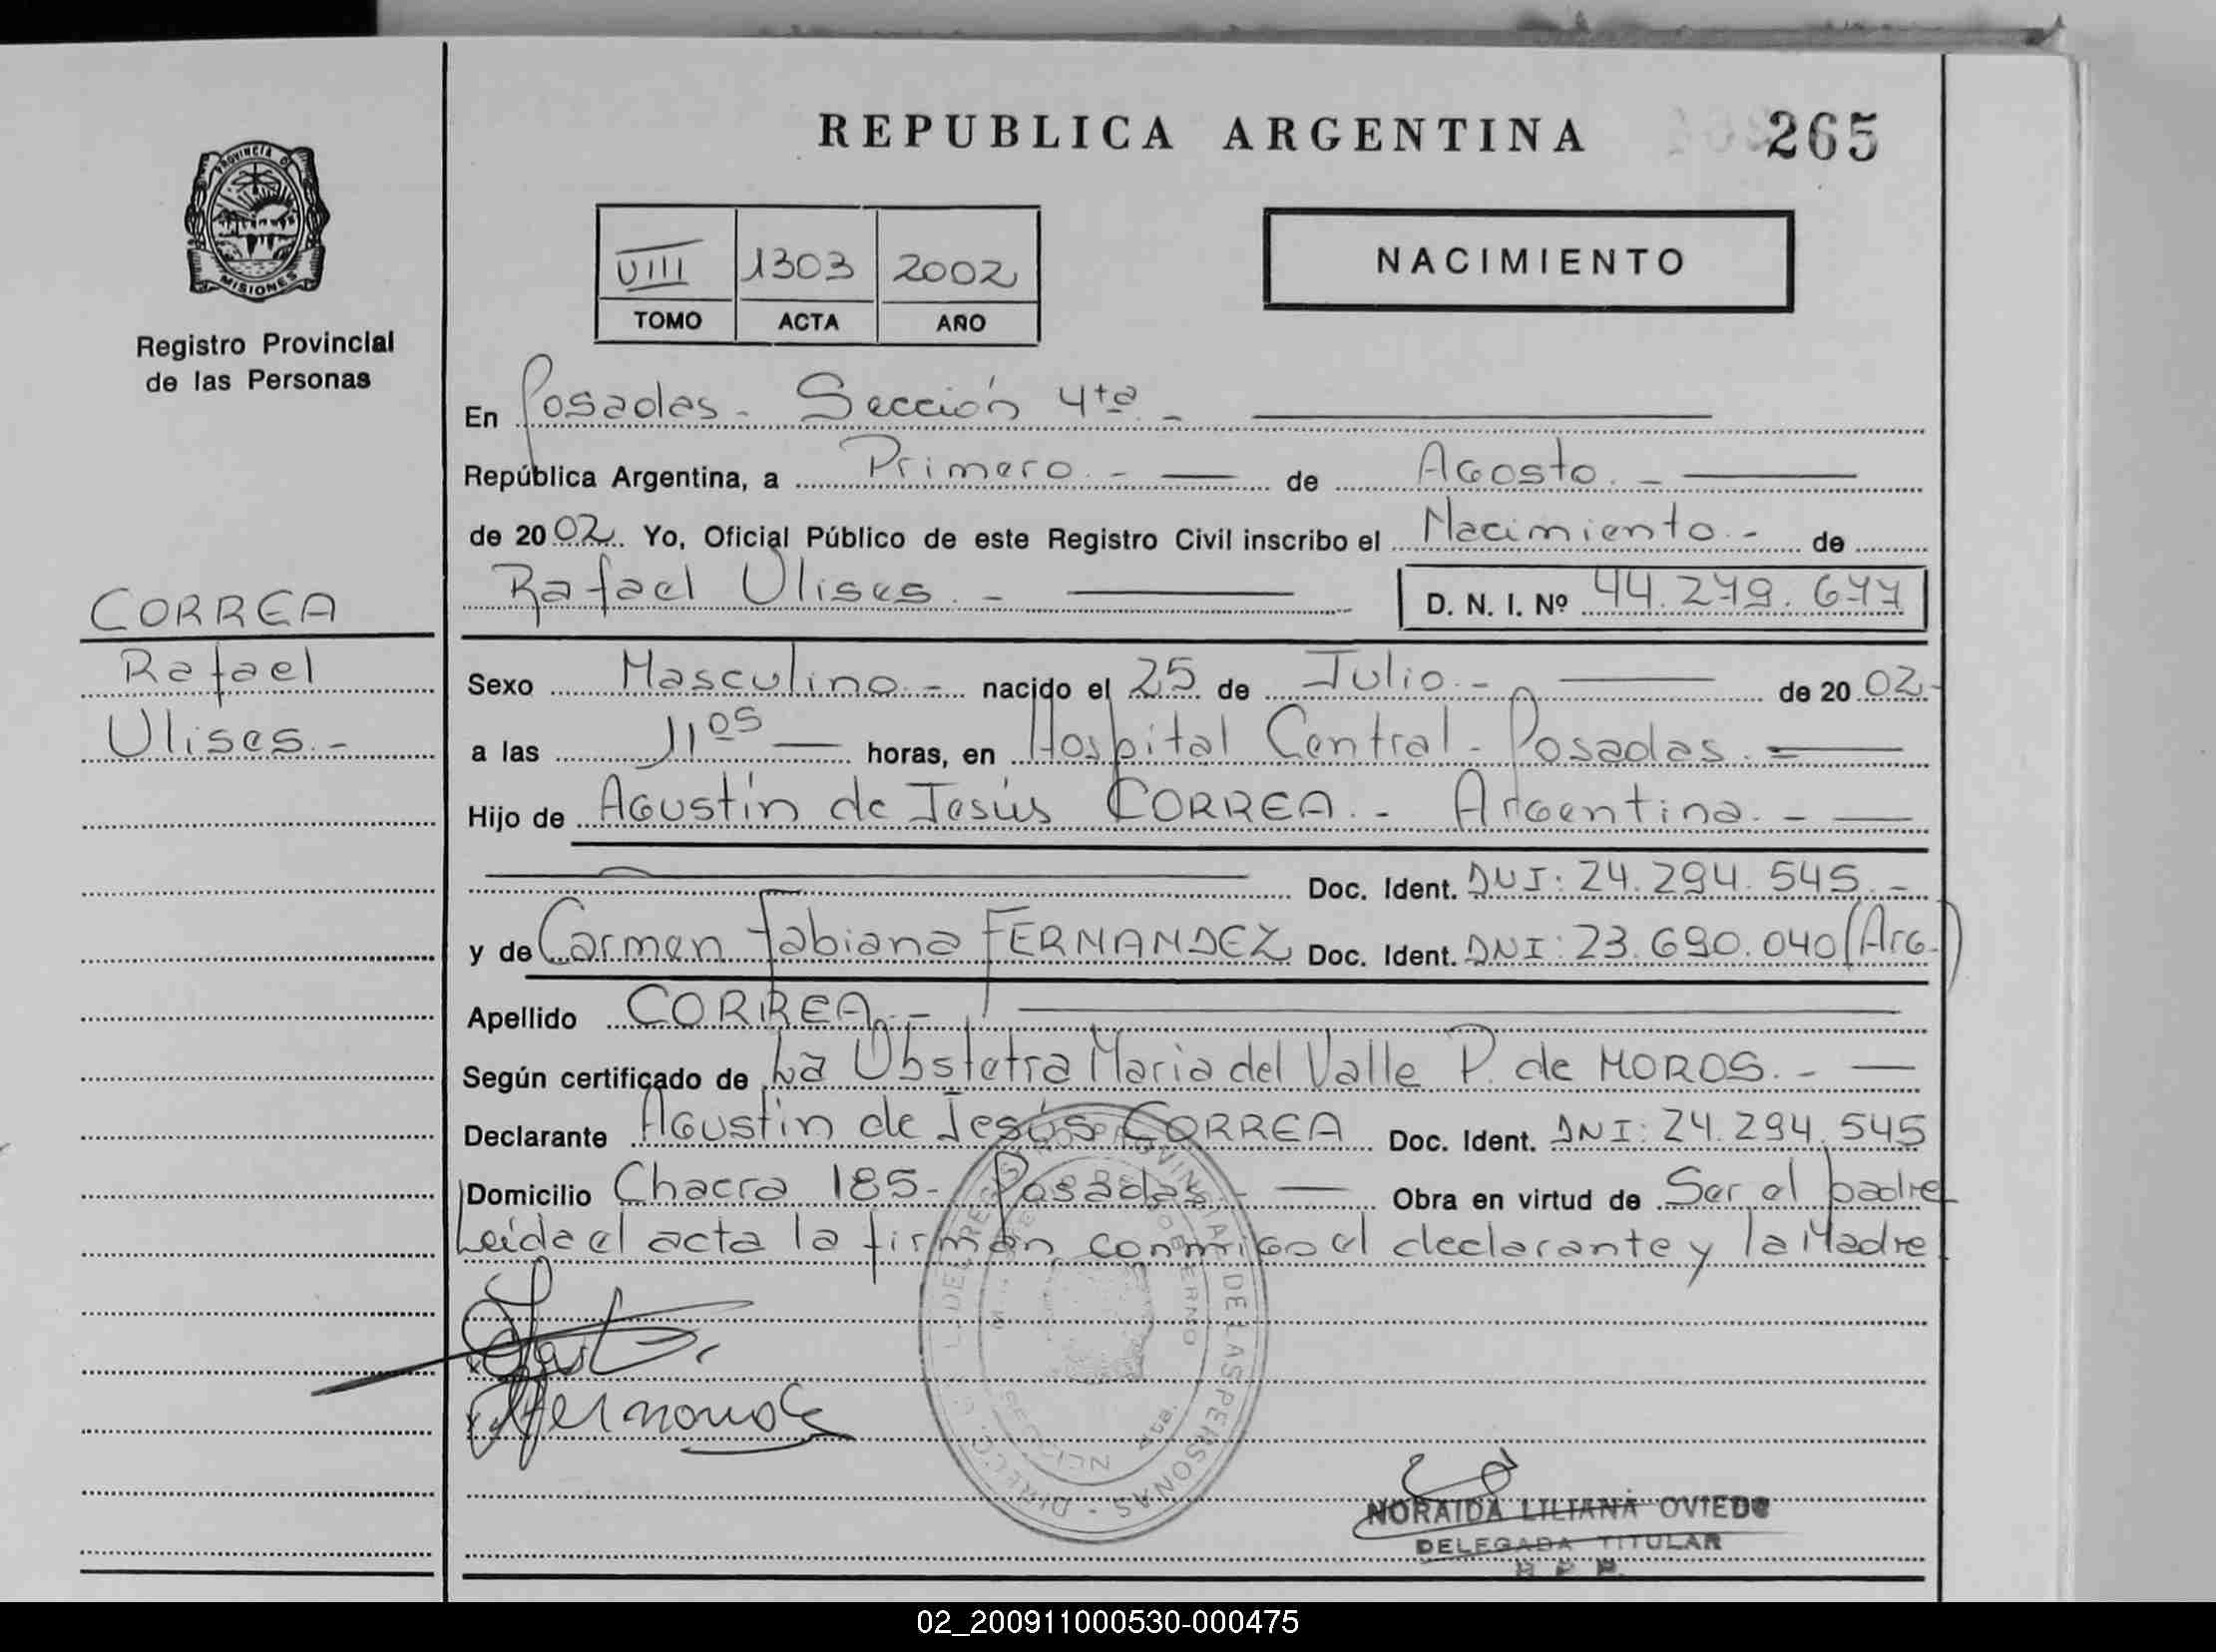 REPUBLICA ARGENTINA
265
PROVINCIA D
MISIONES
Registro Provincial
de las Personas
VIII 1303 2002
TOMO ACTA AÑO
NACIMIENTO
En Posadas - Sección 4ta -
República Argentina, a Primero - de Agosto. -
de 2002. Yo, Oficial Público de este Registro Civil inscribo el Nacimiento - de
Rafael Ulises. - D. N. I. Nº 44.279.677
CORREA
Rafael
Ulises. -
Sexo Masculino. - nacido el 25 de Julio. - de 2002-
a las 11 05 horas, en Hospital Central - Posadas. =
Hijo de Agustín de Jesús CORREA. - Argentina. -
Doc. Ident. DNI: 24.294.545. -
y de Carmen Fabiana FERNANDEZ Doc. Ident. DNI: 23.690.040 (Arg.)
Apellido CORREA. -
Según certificado de La Obstetra Maria del Valle P. de MOROS. -
Declarante Agustín de Jesús CORREA Doc. Ident. DNI: 24.294.545
Domicilio Chacra 185- Posadas - Obra en virtud de Ser el padre
Leida el acta la firman conmigo el declarante y la Madre
PROVINCIAL DE LAS PERSONAS
GOBIERNO
4ta.
NORAIDA LILIANA OVIEDO
DELEGADA TITULAR
R P P.
02_200911000530-000475